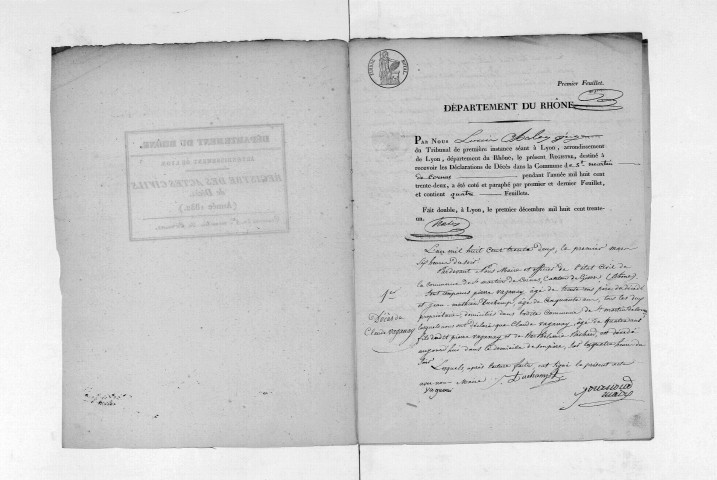 Premier Feuillet.
DÉPARTEMENT DU RHÔNE
PAR NOUS
du Tribunal de première instance séant à Lyon, arrondissement
de Lyon, département du Rhône, le présent REGISTRE, destiné à
recevoir les Déclarations de Décès dans la Commune de St martin
de Cornas pendant l'année mil huit cent
trente-deux, a été coté et paraphé par premier et dernier Feuillet,
et contient quatre Feuillets.
Fait double, à Lyon, le premier décembre mil huit cent trente-
un.
L'an mil huit Cent trente deux, le premier mars
six heures du soir
Pardevant Nous Maire et officier de l'état Civil de
la commune de St martin de Cornas, Canton de Givors (Rhône)
sont comparus pierre vaganay, âgé de trente ans père du décédé
et jean âgé de Cinquante un, tous les deux
propriétaires, domiciliés dans notre Commune de St martin de Cornas
lesquels nous ont déclaré que Claude vaganay, âgé de quatre ans
fils dudit pierre vaganay et de est décédé
aujourd'hui dans le domicile de son père, sur les quatre heures du
soir
Lesquels après lecture faite, ont signé le présent acte
avec nous Maire
vaganai
maire
1er
Décès de
Claude vaganay
DÉPARTEMENT DU RHÔNE.
ARRONDISSEMENT DE LYON
REGISTRE DES ACTES CIVILS
de Décès
(Année 1832.)